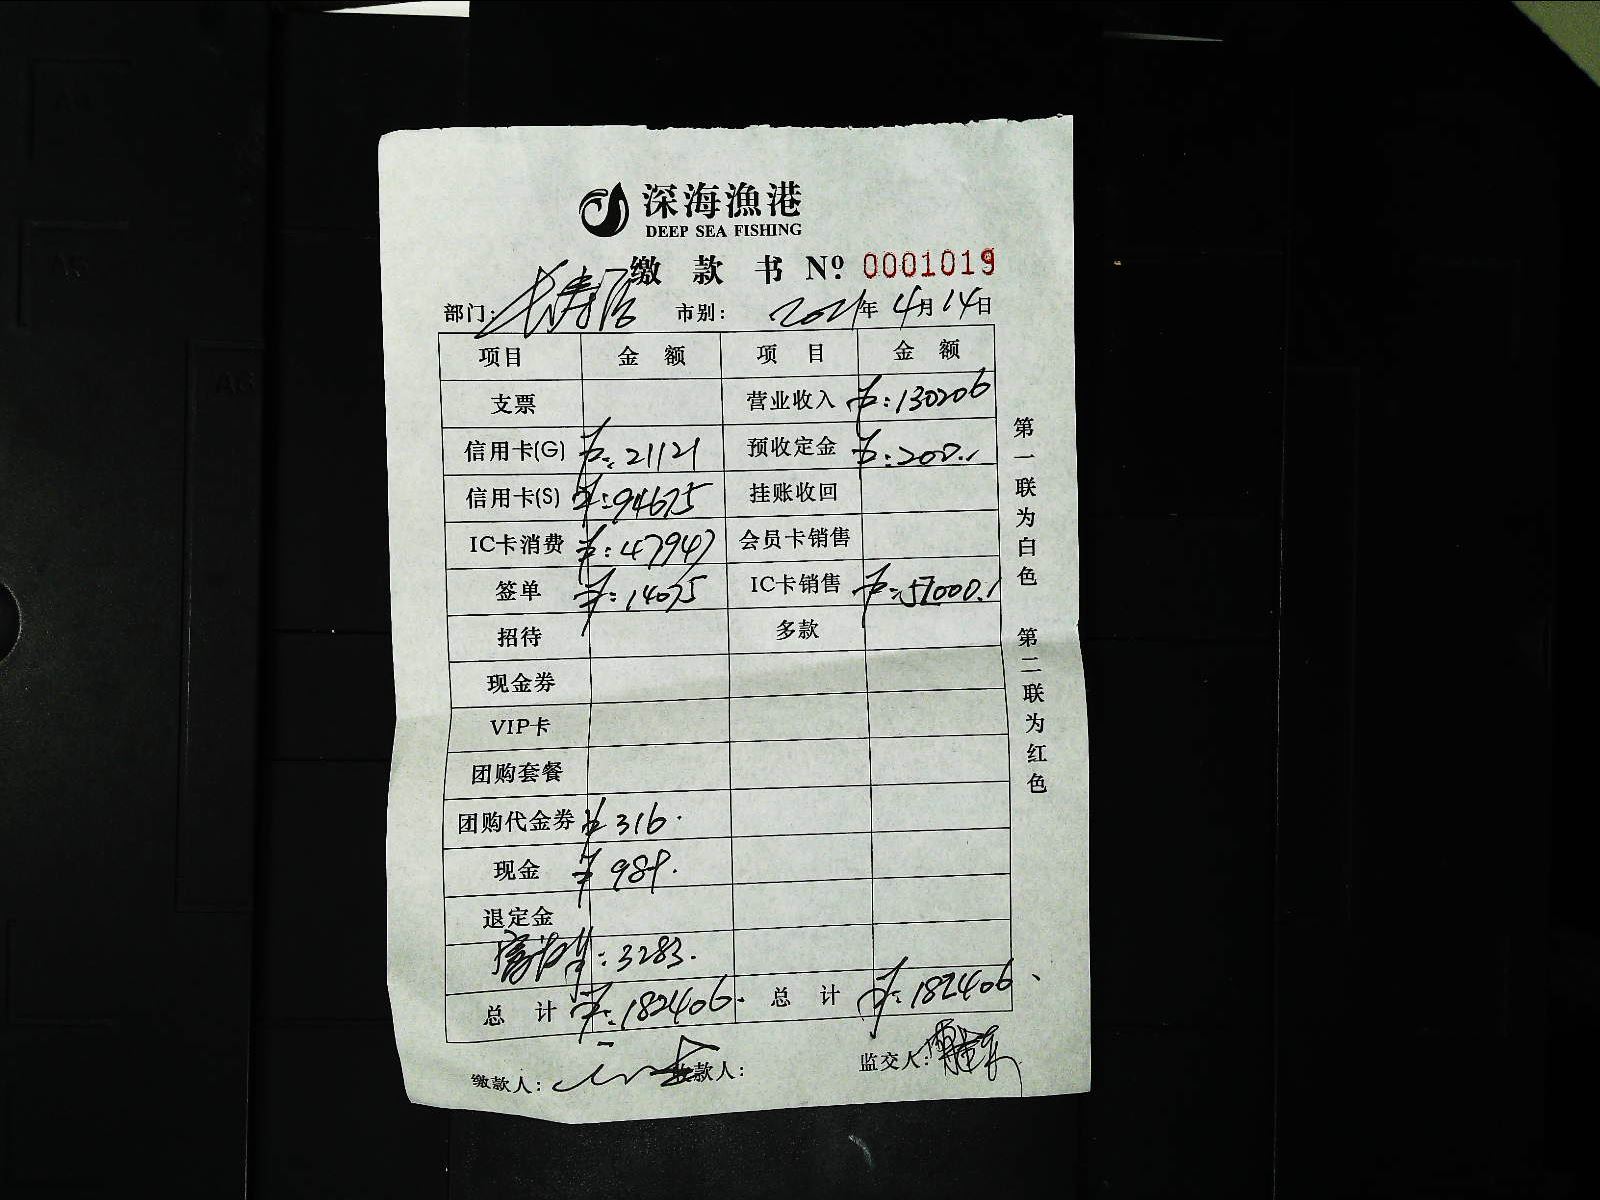 深海漁港
DEEP SEA FISHING
缴款书 Nº 0001019
部门: 长寿店 市别: 2021年4月14日
项目 金额 项目 金额
支票 营业收入 ¥:130206
信用卡(G) ¥:21121 预收定金 ¥:200.
信用卡(S) ¥:94675 挂账收回
IC卡消费 ¥:47947 会员卡销售
签单 ¥:14075 IC卡销售 ¥:52000.
招待 多款
现金券
VIP卡
团购套餐
团购代金券 ¥316.
现金 ¥989.
退定金
:3283.
总计 ¥:182406. 总计 ¥:182406
缴款人: 收款人: 监交人:
第一联为白色 第二联为红色